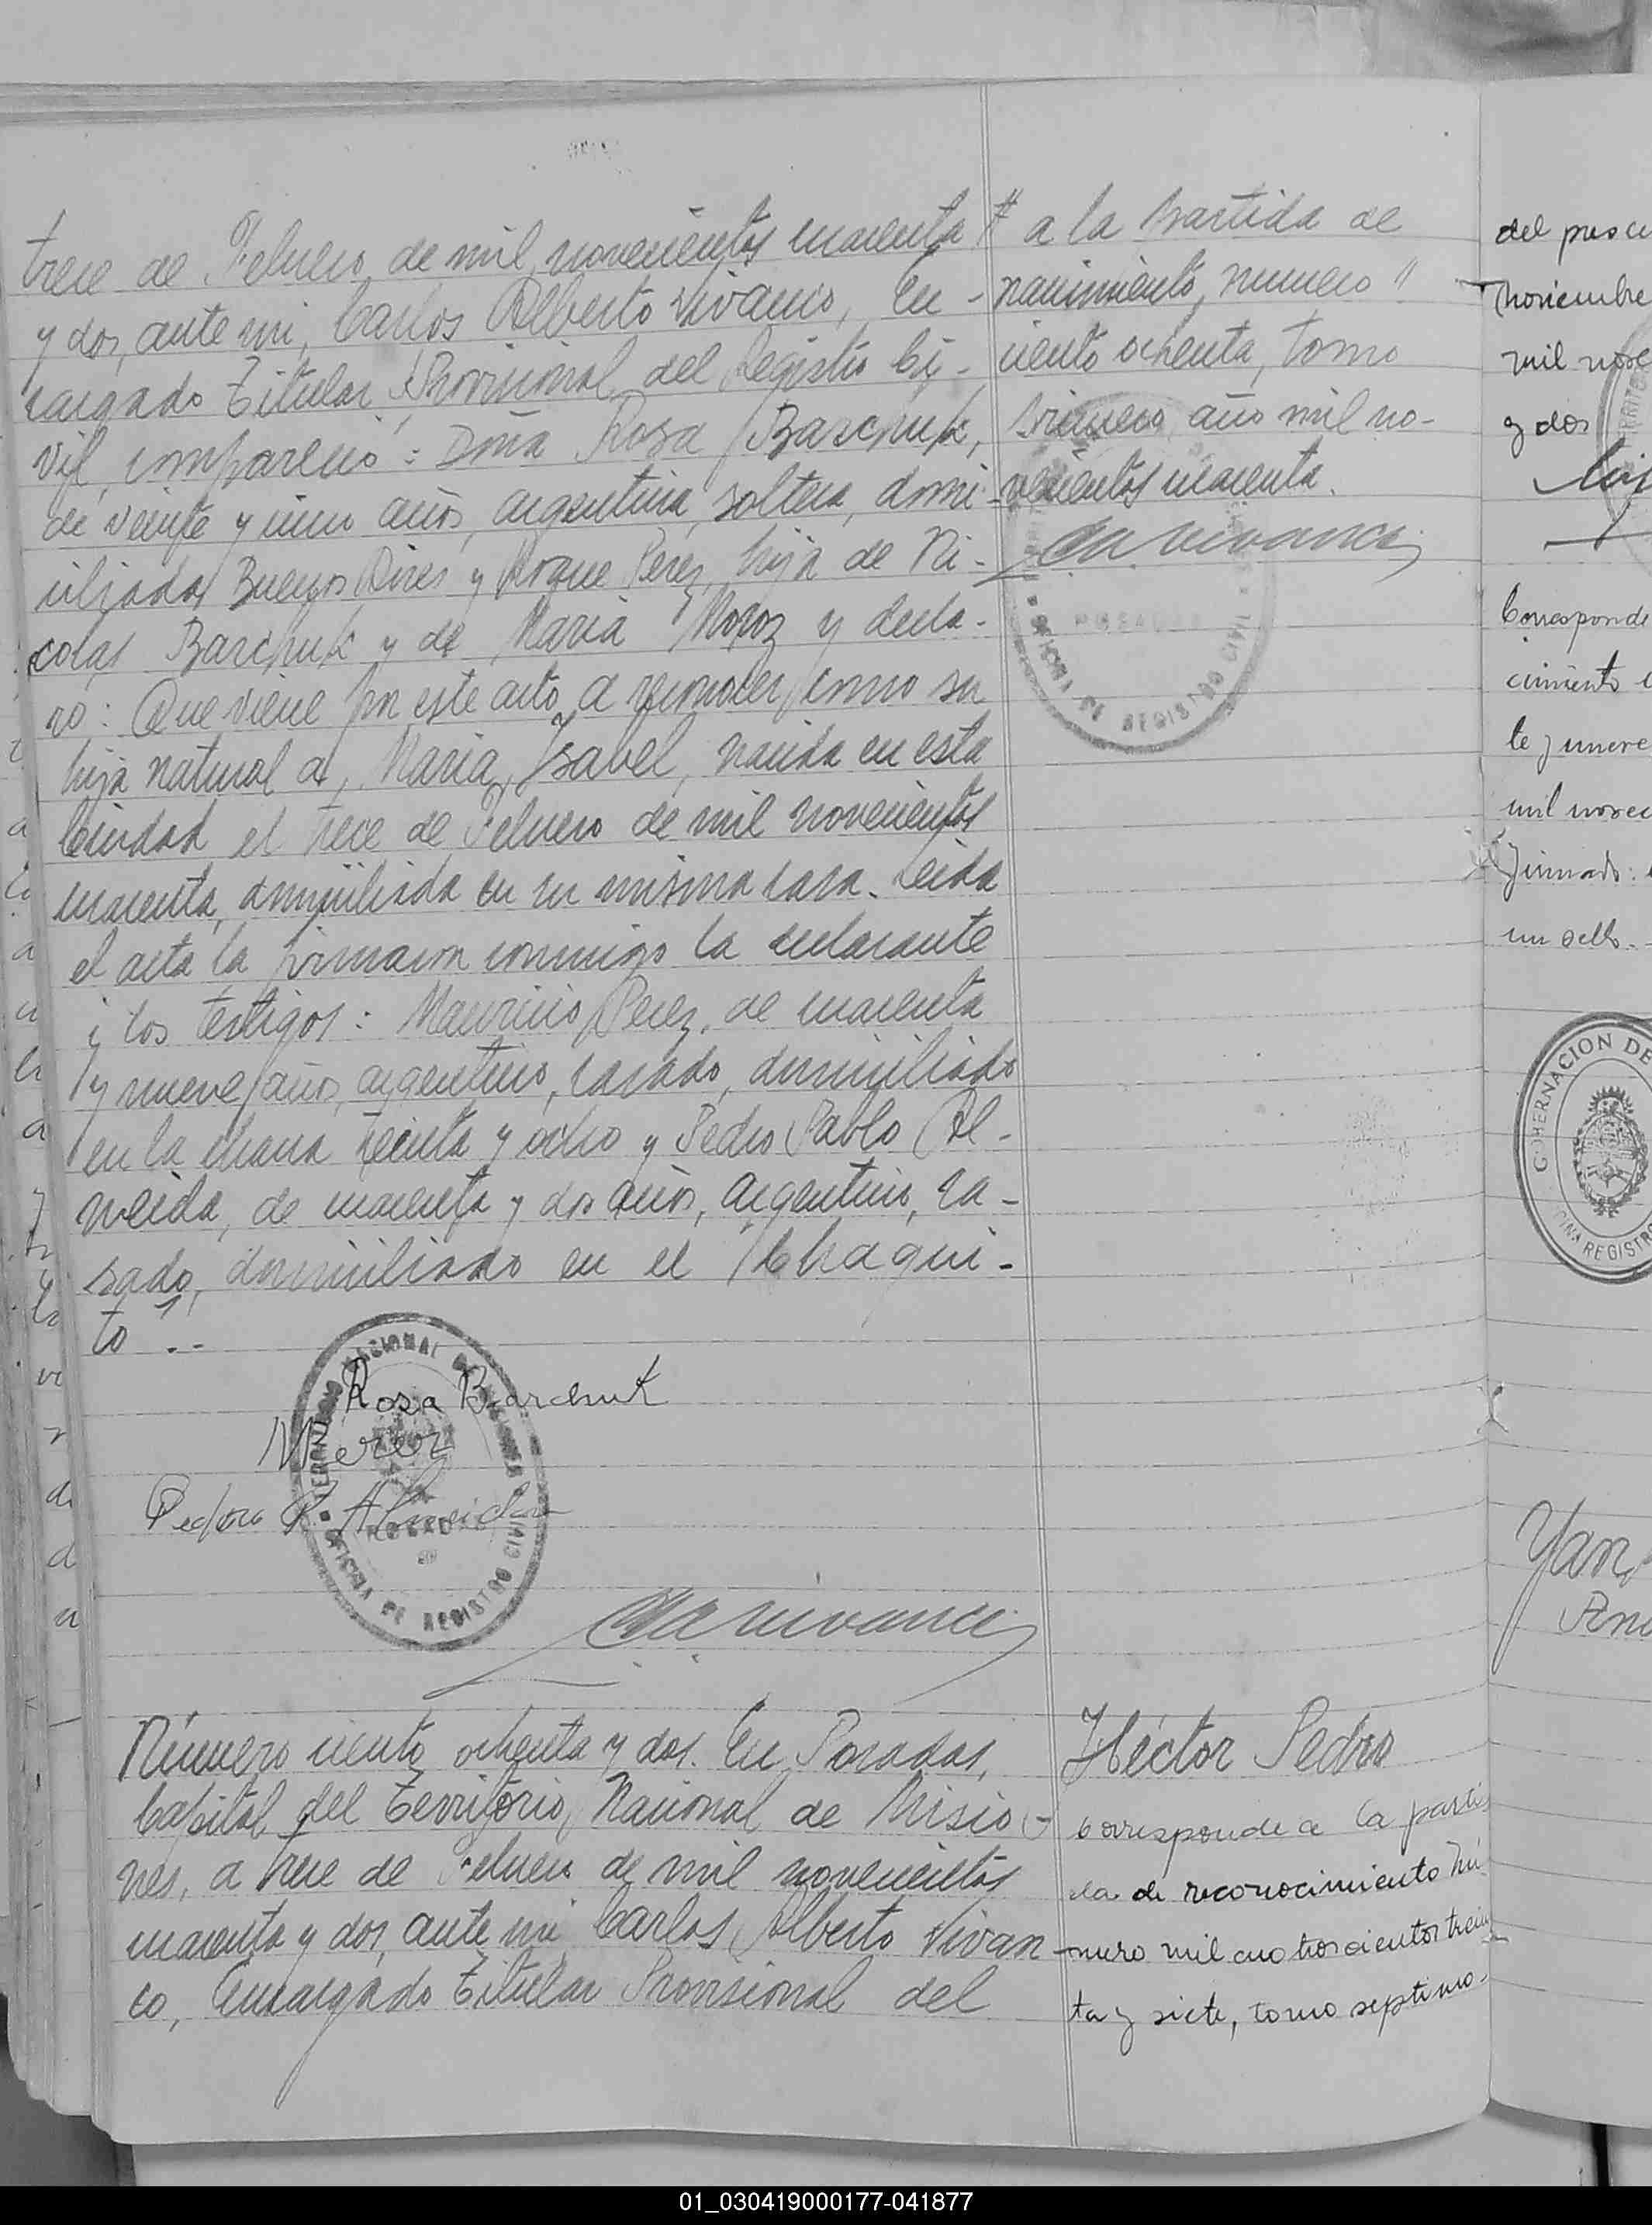 trece de Febrero de mil novecientos cuarenta
y dos, ante mi, Carlos Alberto Vivanco, En-
cargado Titular Provisional del Registro Ci-
vil, compareció: Doña Rosa Barchuk,
de veinte y cinco años, argentina, soltera, domi-
ciliada Buenos Aires y Roque Perez, hija de Ni-
colas Barchuk y de Maria Moroz y decla-
ró: Que viene por este acto a reconocer como su
hija natural a, Maria Isabel, nacida en esta
Ciudad el trece de Febrero de mil novecientos
cuarenta, domiciliada en su misma casa. Leida
el acta la firmaron conmigo la declarante
i los testigos: Mauricio Perez, de cuarenta
y nueve años, argentino, casado, domiciliado
en la chacra treinta y ocho y Pedro Pablo Al-
meida, de cuarenta y dos años, argentino, ca-
sado, domiciliado en el Chaqui-
to".-
Rosa Barchuk
MPerez
Pedro P. Almeida
CAVivanco
TERRITORIO NACIONAL DE MISIONES
POSADAS
OFICINA DE REGISTRO CIVIL
# a la partida de
nacimiento, numero "
ciento ochenta, tomo
primero, año mil no-
vecientos cuarenta.
CAVivanco
POSADAS
OFICINA DE REGISTRO CIVIL
Número ciento ochenta y dos. En Posadas,
Capital del Territorio Nacional de Misio-
nes, a trece de Febrero de mil novecientos
cuarenta y dos, ante mi Carlos Alberto Vivan-
co, Encargado Titular Provisional del
Héctor Pedro
Corresponde a la parti
da de reconocimiento nú
mero mil cuatrocientos trein
ta y siete, tomo septimo.
Noviembre
mil nove
y dos
Corresponde
cimiento
te y nueve
mil novec
firmado:
un sello.-
GOBERNACION DE
OFICINA REGISTRO
01_030419000177-041877